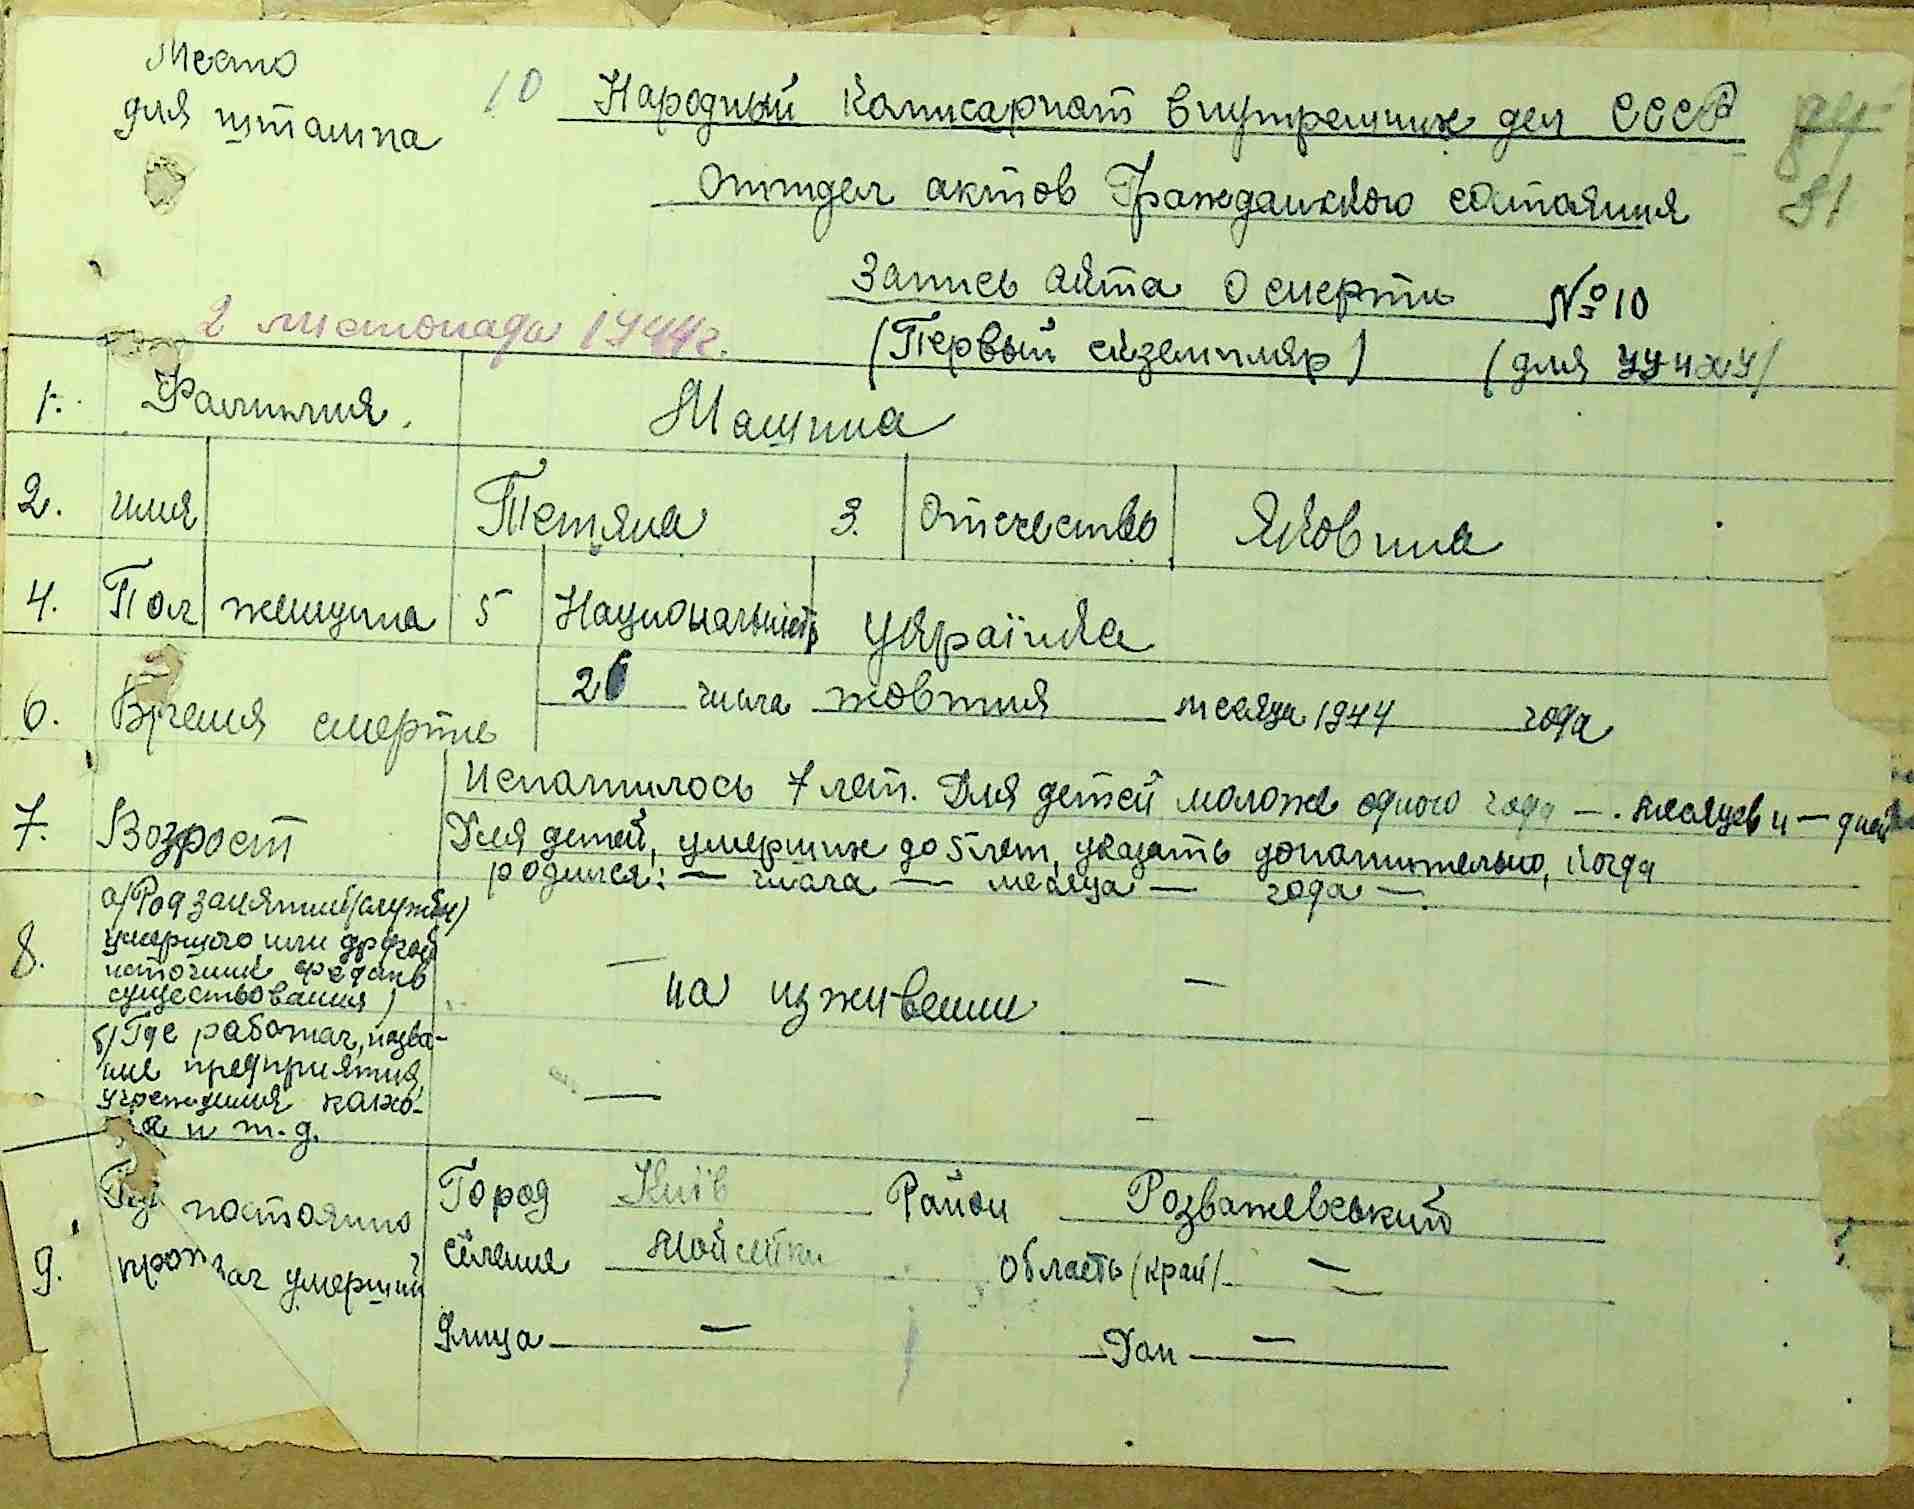 Место
для штампа
10 Народный комисариат внутрениих дел СССР
Оттдел актов Гражданского состояния
31
Запись акта о смерти №10
2 листопада 1944г.
(Первый екземпляр) (для УУНХУ)
1. Фамилия. Машина
2. имя Тетяна 3. Отчество Яковина
4. Пол женщина 5 Национальность Українка
6. Время смерти 26 числа жовтня месяца 1944 года
7. Возрост Испонилось 7 лет. Для детей моложе одного года — . месяцев и — дней
Для детей, умерших до 5 лет, указать допонительно, когда
родился: — числа — месяца — года —.
8. а) Род занятий (службы)
умершего или другой
источник средств
существования)
— на иживении —
б) Где работал, назва-
ние предприятия,
учреждения колхо-
за и т.д.
— —
9. Где постоянно
проживал умерший
Город Київ Район Розважевський
селение Мойсейки область (край) —
Улица — Дом —